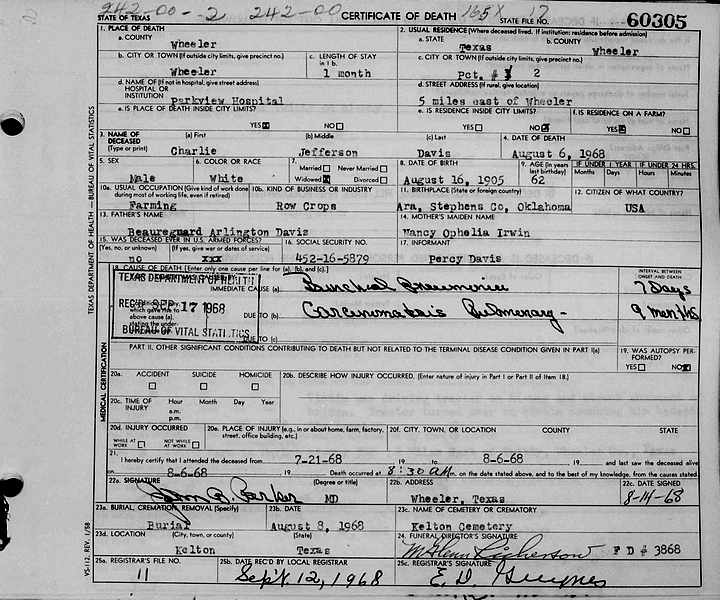 242-00-2 242-00
STATE OF TEXAS CERTIFICATE OF DEATH 165X 17 STATE FILE NO. 60305
1. PLACE OF DEATH 2. USUAL RESIDENCE (Where deceased lived. If institution: residence before admission)
a. COUNTY Wheeler a. STATE Texas b. COUNTY Wheeler
b. CITY OR TOWN (If outside city limits, give precinct no.) c. LENGTH OF STAY in 1 b. c. CITY OR TOWN (If outside city limits, give precinct no.)
Wheeler 1 month Pct. # 2
d. NAME OF (If not in hospital, give street address) HOSPITAL OR INSTITUTION d. STREET ADDRESS (If rural, give location)
Parkview Hospital 5 miles east of Wheeler
e. IS PLACE OF DEATH INSIDE CITY LIMITS? e. IS RESIDENCE INSIDE CITY LIMITS? f. IS RESIDENCE ON A FARM?
YES NO YES NO YES NO
3. NAME OF DECEASED (Type or print) (a) First (b) Middle (c) Last 4. DATE OF DEATH
Charlie Jefferson Davis August 6, 1968
5. SEX 6. COLOR OR RACE 7. Married Never Married Widowed Divorced 8. DATE OF BIRTH 9. AGE (In years last birthday) IF UNDER 1 YEAR IF UNDER 24 HRS.
Months Days Hours Min.
Male White August 16, 1905 62
10a. USUAL OCCUPATION (Give kind of work done during most of working life, even if retired) 10b. KIND OF BUSINESS OR INDUSTRY 11. BIRTHPLACE (State or foreign country) 12. CITIZEN OF WHAT COUNTRY?
Farming Row Crops Ara, Stephens Co, Oklahoma USA
13. FATHER'S NAME 14. MOTHER'S MAIDEN NAME
Beauregnard Arlington Davis Nancy Ophelia Irwin
15. WAS DECEASED EVER IN U.S. ARMED FORCES? 16. SOCIAL SECURITY NO. 17. INFORMANT
(Yes, no, or unknown) (If yes, give war or dates of service)
no xxx 452-16-5879 Percy Davis
18. CAUSE OF DEATH [Enter only one cause per line for (a), (b), and (c).] INTERVAL BETWEEN ONSET AND DEATH
TEXAS DEPARTMENT OF HEALTH
IMMEDIATE CAUSE (a) Bronchial Pneumonia 7 Days
REC'D SEP 17 1968
which gave rise to above cause (a), stating the under-
DUE TO (b) Carcinomatosis Pulmonary - 9 months
BUREAU OF VITAL STATISTICS
DUE TO (c)
PART II. OTHER SIGNIFICANT CONDITIONS CONTRIBUTING TO DEATH BUT NOT RELATED TO THE TERMINAL DISEASE CONDITION GIVEN IN PART I(a) 19. WAS AUTOPSY PERFORMED?
YES NO
20a. ACCIDENT SUICIDE HOMICIDE 20b. DESCRIBE HOW INJURY OCCURRED. (Enter nature of injury in Part I or Part II of Item 18.)
20c. TIME OF INJURY Hour a.m. p.m. Month Day Year
20d. INJURY OCCURRED WHILE AT WORK NOT WHILE AT WORK 20e. PLACE OF INJURY (e.g., in or about home, farm, factory, street, office building, etc.) 20f. CITY, TOWN, OR LOCATION COUNTY STATE
21. I hereby certify that I attended the deceased from 7-21-68 19 to 8-6-68 19 and last saw the deceased alive
on 8-6-68 19 Death occurred at 8:30 AM m. on the date stated above, and to the best of my knowledge, from the causes stated.
22a. SIGNATURE (Degree or title) 22b. ADDRESS 22c. DATE SIGNED
Parker MD Wheeler, Texas 8-14-68
23a. BURIAL, CREMATION, REMOVAL (Specify) 23b. DATE 23c. NAME OF CEMETERY OR CREMATORY
Burial August 8, 1968 Kelton Cemetery
23d. LOCATION (City, town, or county) (State) 24. FUNERAL DIRECTOR'S SIGNATURE
Kelton Texas F D # 3868
25a. REGISTRAR'S FILE NO. 25b. DATE REC'D BY LOCAL REGISTRAR 25c. REGISTRAR'S SIGNATURE
11 Sept 12, 1968
TEXAS DEPARTMENT OF HEALTH — BUREAU OF VITAL STATISTICS
MEDICAL CERTIFICATION
VS-112, REV. 1/58